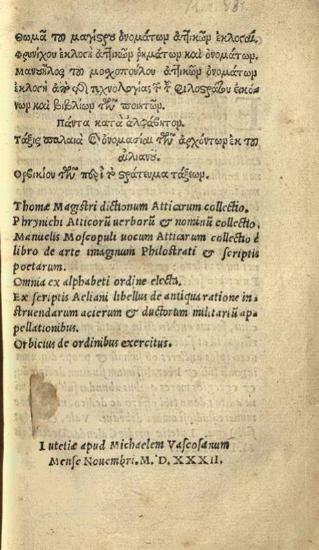 Θωμᾶ τοῦ μαγίστρου ὀνομάτων ἀττικῶν ἐκλογαί.
Φρυνίχου ἐκλογὴ ἀττικῶν ῥημάτων καὶ ὀνομάτων.
Μανουήλος τοῦ μοσχοπούλου ἀττικῶν ὀνομάτων
ἐκλογὴ ἀπὸ τεχνολογίας τῶν φιλοστράτου εἰκό-
νων καὶ βιβλίων τῶν ποιητῶν.
Πάντα κατὰ ἀλφάβητον.
Τάξις παλαιὰ καὶ ὀνομασίαι τῶν ἀρχόντων ἐκ τοῦ
αἰλιανοῦ.
Ὀρβικίου τῶν περὶ τὸ στράτευμα τάξεων.
Thomæ Magistri dictionum Atticarum collectio.
Phrynichi Atticorũ uerborũ & nominũ collectio.
Manuelis Moscopuli uocum Atticarum collectio è
libro de arte imaginum Philostrati & scriptis
poetarum.
Omnia ex alphabeti ordine electa.
Ex scriptis Aeliani libellus de antiqua ratione in-
struendarum acierum & ductorum militariũ ap-
pellationibus.
Orbicius de ordinibus exercitus.
Lutetiæ apud Michaelem Vascosanum
Mense Nouembri. M. D. XXXII.